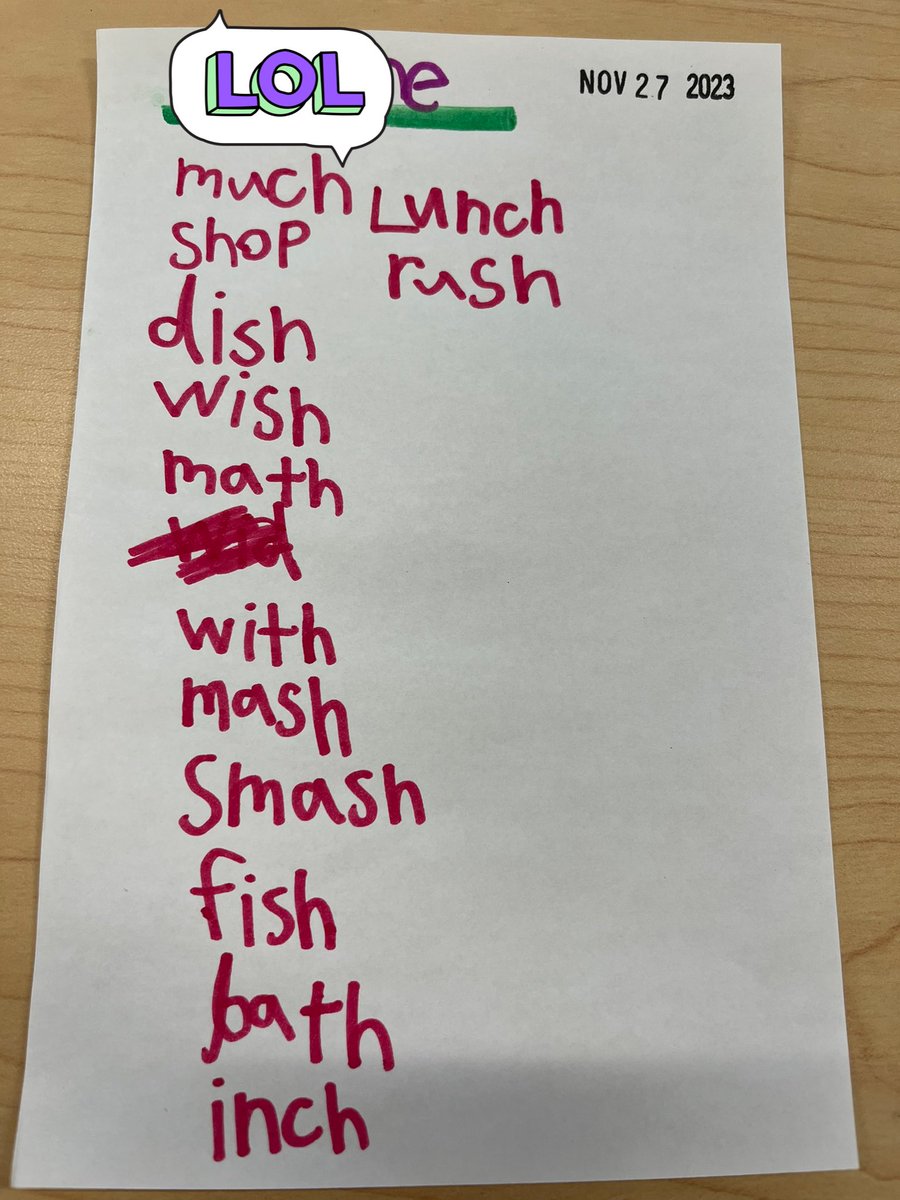 LOL
NOV 27 2023
much
shop
dish
wish
math
with
mash
Smash
fish
bath
inch
Lunch
rush